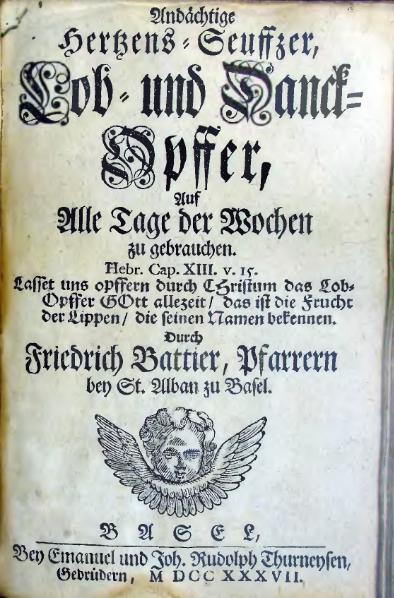 Andächtige
Hertzens-Seuffzer,
Lob- und Danck-
Opffer,
Auf
Alle Tage der Wochen
zu gebrauchen.
Hebr. Cap. XIII. v. 15.
Lasset uns opffern durch CHristum das Lob-
Opffer GOtt allezeit / das ist die Frucht
der Lippen / die seinen Namen bekennen.
Durch
Friedrich Battier, Pfarrern
bey St. Alban zu Basel.
BASEL,
Bey Emanuel und Joh. Rudolph Thurneysen,
Gebrüdern, M DCC XXXVII.